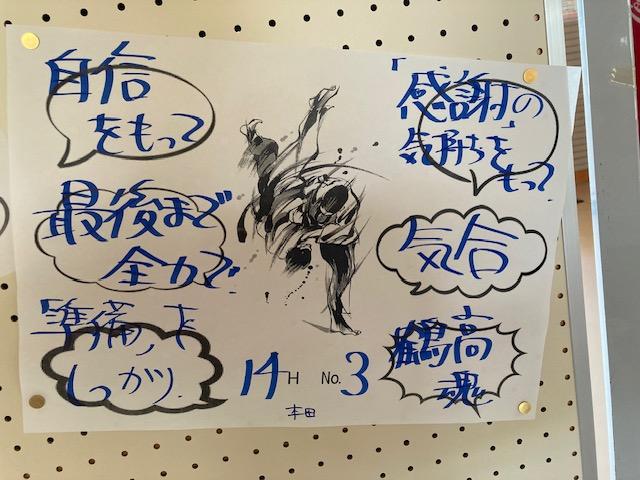 自信
をもって
最後まで
全力で
「準備」を
しっかり
「感謝の
気持ち」を
もって
気合
鶴高
魂
14H No.3
本田